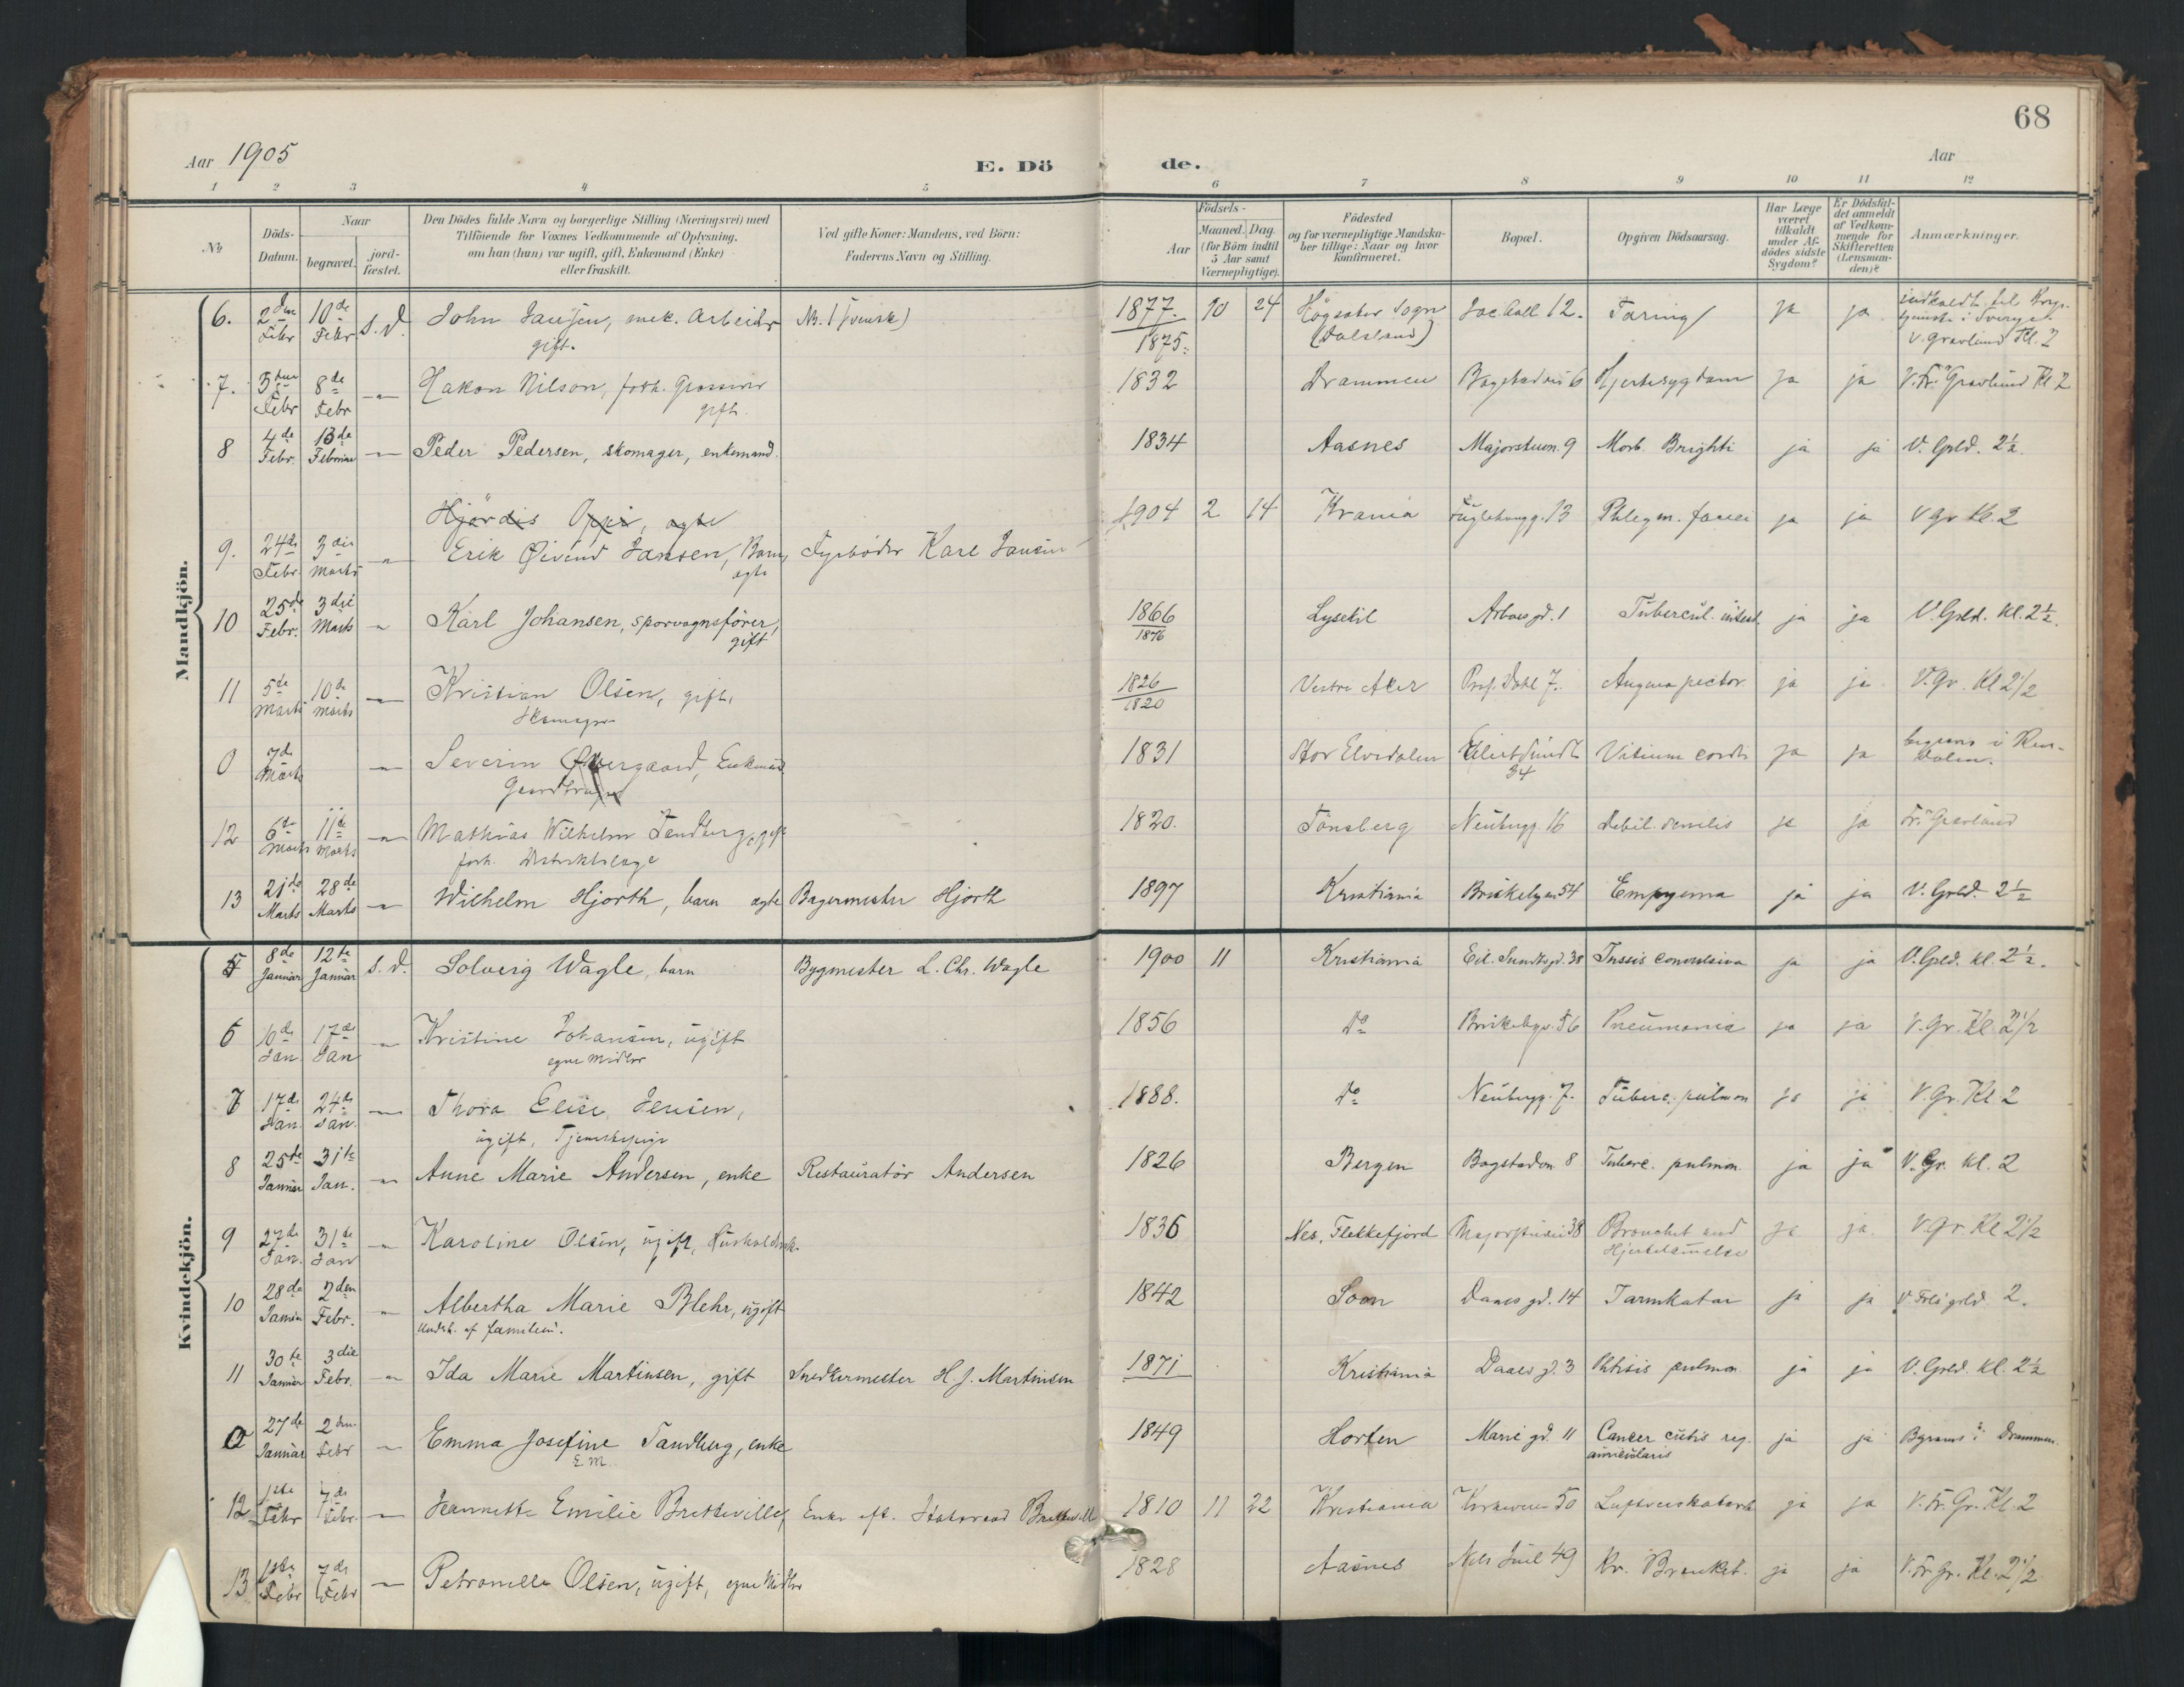 68
Aar 1905 E. Dö de. Aar
1 2 3 4 5 6 7 8 9 10 11 12
No Döds-Datum. Naar begravet. jord-fæstet. Den Dödes fulde Navn og borgerlige Stilling (Næringsvei) med Tilföiende for Voxnes Vedkommende af Oplysning, om han (hun) var ugift, gift, Enkemand (Enke) eller fraskilt. Ved gifte Koner: Mandens, ved Börn: Faderens Navn og Stilling. Födsels- Aar Maaned. Dag. (for Börn indtil 5 Aar samt Værnepligtige). Födested og for værnepligtige Mandskaber tillige: Naar og hvor konfirmeret. Bopæl. Opgiven Dödsaarsag. Har Læge været tilkaldt under Afdödes sidste Sygdom? Er Dödsfaldet anmeldt af Vedkommende for Skifteretten (Lensmanden)? Anmærkninger.
Mandkjön.
6. 2den Febr 10de Febr S.D. John Jansen, mek. Arbeider gift. Nr. 1 (svensk) 1877 1875 10 24 Högsater Sogn (Dalsland) Jac. Aall 12. Taring ja ja V. Gravlund Kl. 2
7. 3die Febr 8de Febr Hakon Nilson, forh. Grosserer gift. 1832 Drammen Bogstadvei 6 Hjertesygdom ja ja V. Fr. Gravlund Kl 2
8 4de Febr. 13de Februar Peder Pedersen, skomager, enkemand. 1834 Aasnes Majorstuvn. 9 Morb. Brighti ja ja V. Grld. 2½.
Hjördis Oppi, ægte
9. 24de Febr. 3die Marts Erik Øivind Jansen, Barn, ægte Fyrböder Karl Jansen 1904 2 14 Krania Fuglehaugg. 13 Phlegm. faciei ja ja V gr Kl. 2
10 25de Febr. 3die Marts Karl Johansen, sporvognsförer, gift 1866 1876 Lysekil Arboes gd. 1 Tubercul. intest. ja ja V. Grld. Kl. 2½.
11 5de Marts 10de Marts Kristian Olsen, gift, Skomager 1826 1820 Vestre Aker Prof. Dahl 7. Angina pector. ja ja V. Gr. Kl 2½
0 7de Marts Severin Øvergaard, Enkemand Gaardbruger 1831 Stor Elvedalen Eilert Sundt 34 Vitium cordis ja ja begraves i Rendalen.
12 6te Marts 11te Marts Mathias Wilhelm Tandberg, gift forh. Distriktslæge 1820. Tönsberg Neubergg. 16 Debil. senilis ja ja Fr. Gravlund
13 21de Marts 28de Marts Wilhelm Hjorth, barn ægte Bagermester Hjorth 1897 Kristiania Briskebyen 54 Empyema ja ja V. Grld. 2½
Kvindekjön.
5 8de Januar 12te Januar S.D. Solveig Wagle, barn Bygmester L. Chr. Wagle 1900 11 Kristiania Eil. Sundts gd. 38 Tussis convulsiva ja ja V. Grld. kl. 2½.
6 10de Jan 17de Jan Kristine Johansen, ugift egne Midler 1856 Do Briskebyv. 56 Pneumonia ja ja V. Gr. Kl. 2½
7 17de Jan 24de Jan. Thora Elise Jensen, ugift, Tjenestepige 1888. Do Neubergg. 7. Tuberc. pulmon ja ja V. Gr. Kl. 2
8 25de Januar 31te Jan. Anne Marie Andersen, enke Restauratör Andersen 1826 Bergen Bogstadvn 8 Tuberc. pulmon. ja ja V. Gr. Kl. 2
9 27de Jan. 31te Jan Karoline Olsen, ugift, Husholdersk. 1836 Nes, Flekkefjord Majorstuvei 38 Bronchit. and Hjertelammelse ja ja V. gr. Kl 2½
10 28de Januar 2den Febr. Albertha Marie Blehr, ugift Underh. af familien. 1842 Soon Daaes gd. 14 Tarmkatar ja ja V. Frels grld. 2.
11 30te Januar 3die Febr. Ida Marie Martinsen, gift Snedkermester H. J. Martinsen 1871 Kristiania Daaes gd. 3 Phtisis pulmon. ja ja V. Grld. Kl. 2½
0 27de Januar 2den Febr Emma Josefine Tandberg, enke E. M. 1849 Horten Marie gd. 11 Cancer cutis reg. auricularis ja ja Bgraves i Drammen.
12 1ste Febr 7de Febr. Jeannette Emilie Bretteville, Enke eft. Statsraad Bretteville 1810 11 22 Kristiania Kirkeveien 50 Luftveiskatarrh ja ja V. Fr. Gr. Kl. 2
13 1ste Febr 7de Febr Petronelle Olsen, ugift, egne Midler 1828 Aasnes Nils Juel 49 Kr. Bronkit. ja ja V. Fr. Gr. Kl. 2½